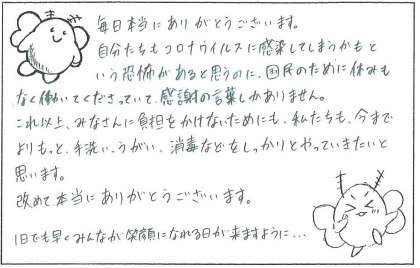 毎日本当にありがとうございます。
自分たちもコロナウイルスに感染してしまうかもと
いう恐怖があると思うのに、国民のために休みも
なく働いてくださっていて、感謝の言葉しかありません。
これ以上、みなさんに負担をかけないためにも、私たちも、今まで
よりもっと、手洗い、うがい、消毒などをしっかりとやっていきたいと
思います。
改めて本当にありがとうございます。
1日でも早くみんなが笑顔になれる日が来ますように…